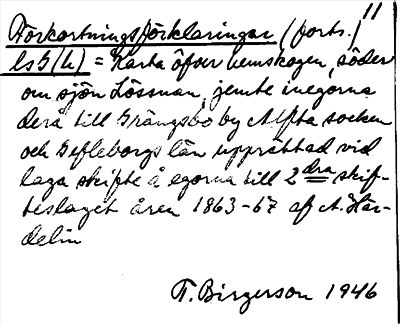 11
Förkortningsförklaringar (forts.)
ls 5 (h) = Karta öfver hemskogen, söder
om sjön Lössnan, jemte inegorna
dera till Grängsbo by Alfta socken
och Gefleborgs län upprättad vid
laga skifte å egorna till 2dra skif-
teslaget åren 1863-67 af A. Här-
delin
T. Birgerson 1946